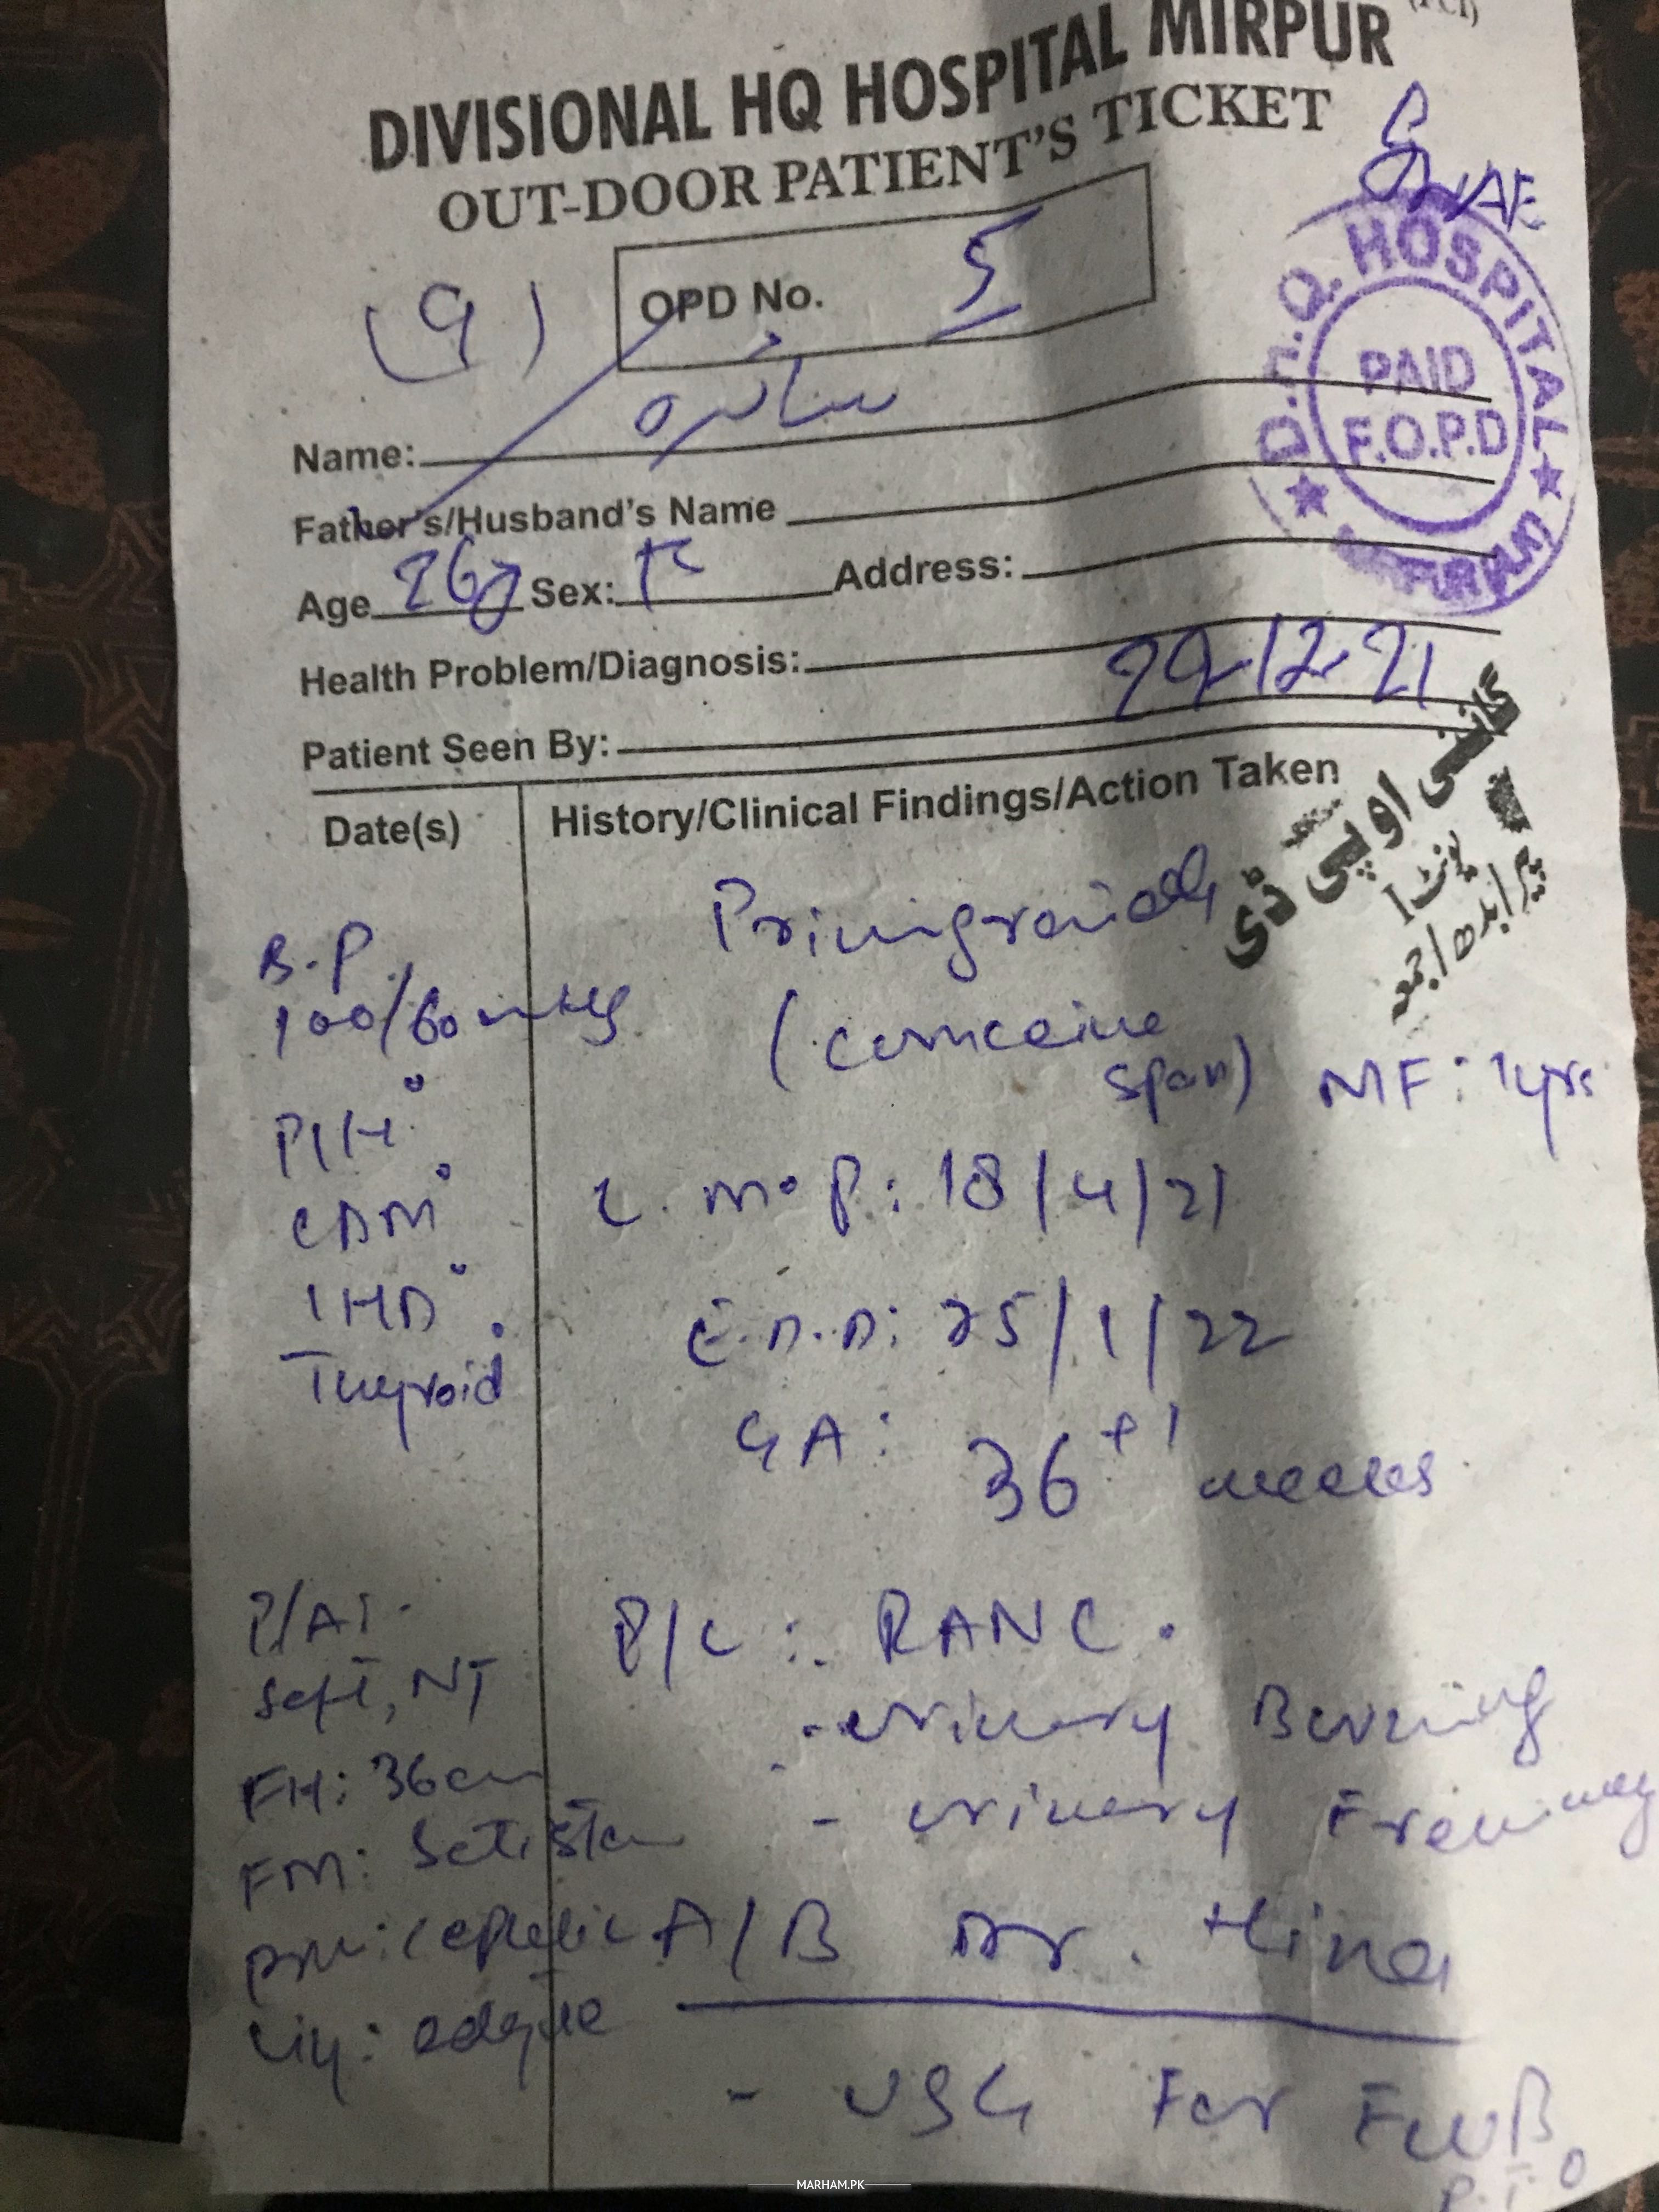 (FCI)
DIVISIONAL HQ HOSPITAL MIRPUR
OUT-DOOR PATIENT'S TICKET
(9)
OPD No. 5
D.H.Q. HOSPITAL
PAID
F.O.P.D
Name: سائرہ
Father's/Husband's Name
Age 26y Sex: Address:
Health Problem/Diagnosis:
29-12-21
Patient Seen By:
گائنی او پی ڈی
یونٹ I
پیر / بدھ / جمعہ
Date(s) History/Clinical Findings/Action Taken
Primigravida
B.P.
100/60 mmHg
(conceive
span) MF: 1yrs
PIH°
L.M.P: 18/4/21
GDM°
IHD°
E.D.D: 25/1/22
Thyroid°
GA: 36+1 weeks
P/A:-
P/C: RANC.
soft, NT
- urinary Burning
FH: 36cm
- urinary Frequency
FM:
cephalic
A/B Dr. Hina
Liq:
- USG For FWB
P.T.O
MARHAM.PK